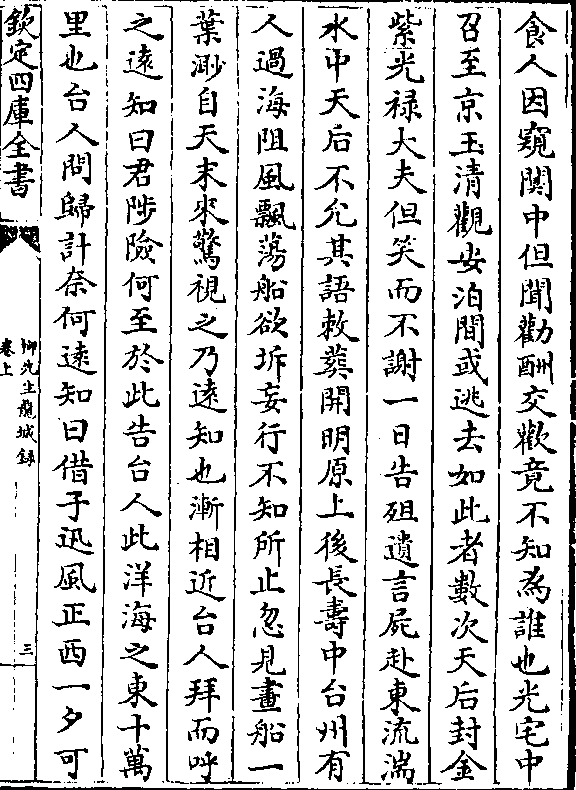 食人因窺闗中但聞勸酬交歡竟不知為誰也光宅中
召至京玉清觀安泊間或逃去如此者數次天后封金
紫光禄大夫但笑而不謝一日告殂遺言屍赴東流湍
水中天后不允其語敕葬開明原上後長壽中台州有
人過海阻風飄蕩船欲坼妄行不知所止忽見畫船一
葉渺自天末來驚視之乃遠知也漸相近台人拜而呼
之遠知曰君陟險何至於此告台人此洋海之東十萬
里也台人問歸計奈何遠知曰借子迅風正西一夕可
欽定四庫全書
柳先生龍城録
卷上
三